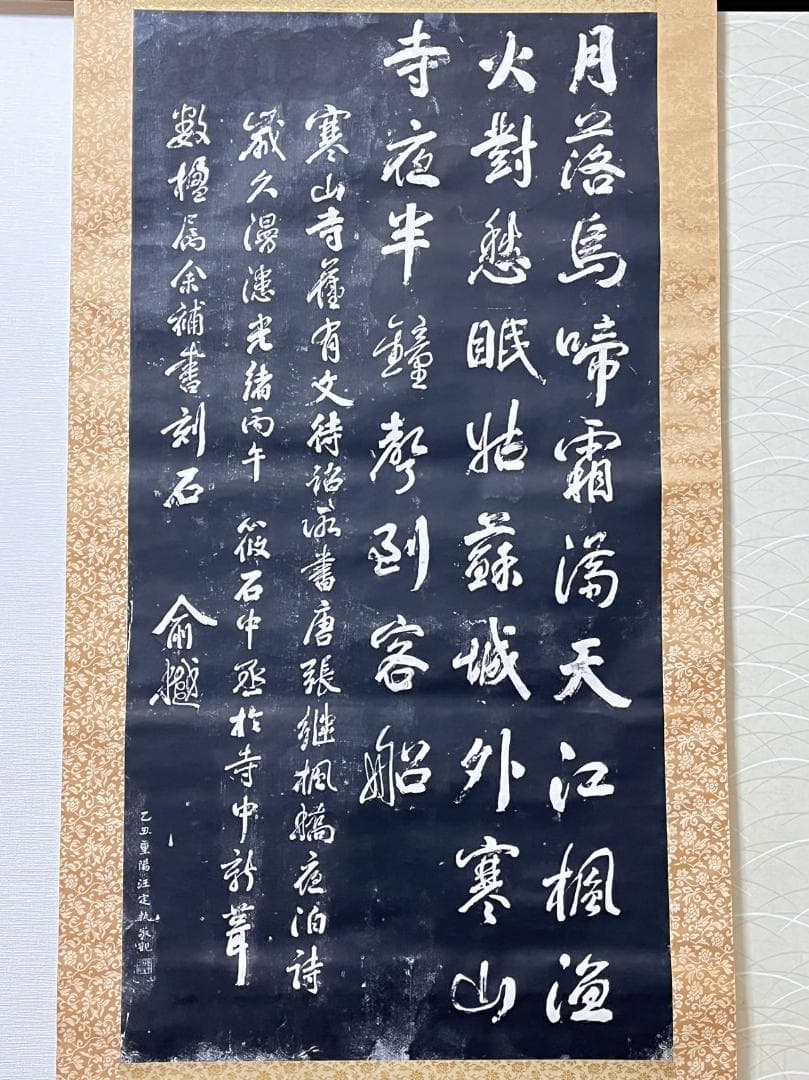 月落烏啼霜滿天江楓漁
火對愁眠姑蘇城外寒山
寺夜半鐘聲到客船
寒山寺舊有文待詔所書唐張繼楓橋夜泊詩
歲久漫漶光緒丙午 筱石中丞於寺中新葺
數楹属余補書刻石
俞樾
乙丑重陽汪定執敬觀